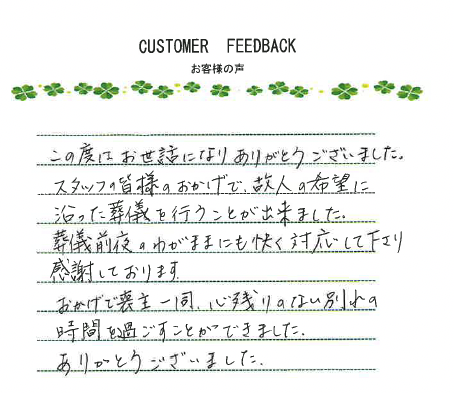 CUSTOMER FEEDBACK
お客様の声
この度はお世話になりありがとうございました。
スタッフの皆様のおかげで、故人の希望に
沿った葬儀を行うことが出来ました。
葬儀前夜のわがままにも快く対応して下さり
感謝しております
おかげで喪主一同、心残りのない別れの
時間を過ごすことができました.
ありがとうございました.